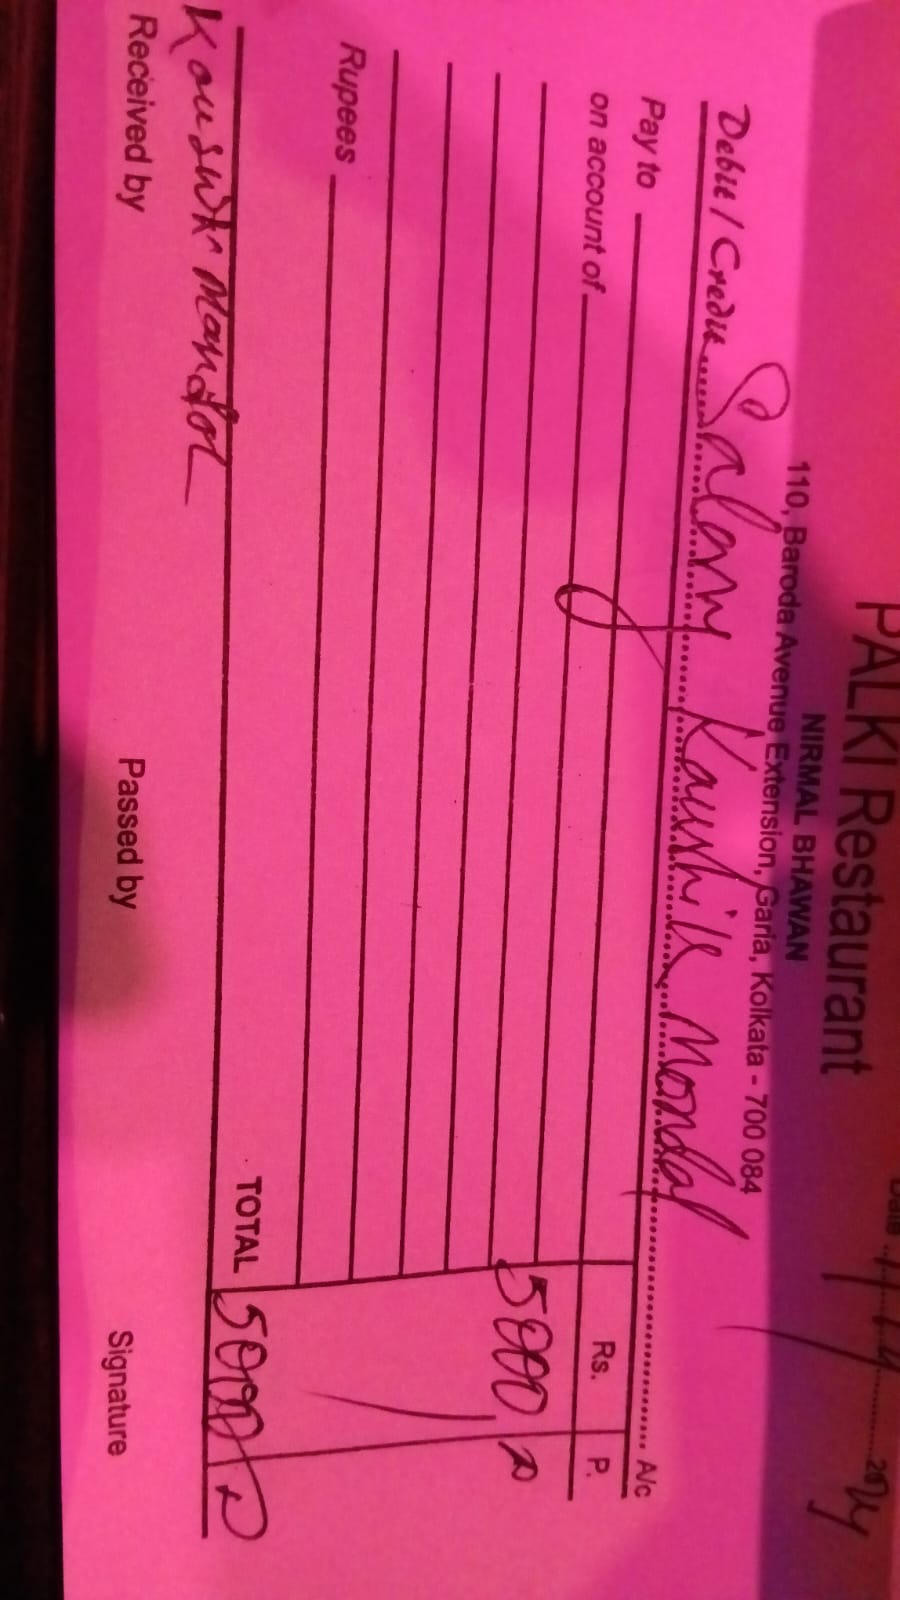 PALKI Restaurant
NIRMAL BHAWAN
110, Baroda Avenue Extension, Garia, Kolkata - 700 084
Date
Debit / Credit Salary Kaushik Mondal A/c
Pay to Rs. P.
on account of
5000
Rupees
TOTAL 5000
Koushik Mandol
Received by Passed by Signature